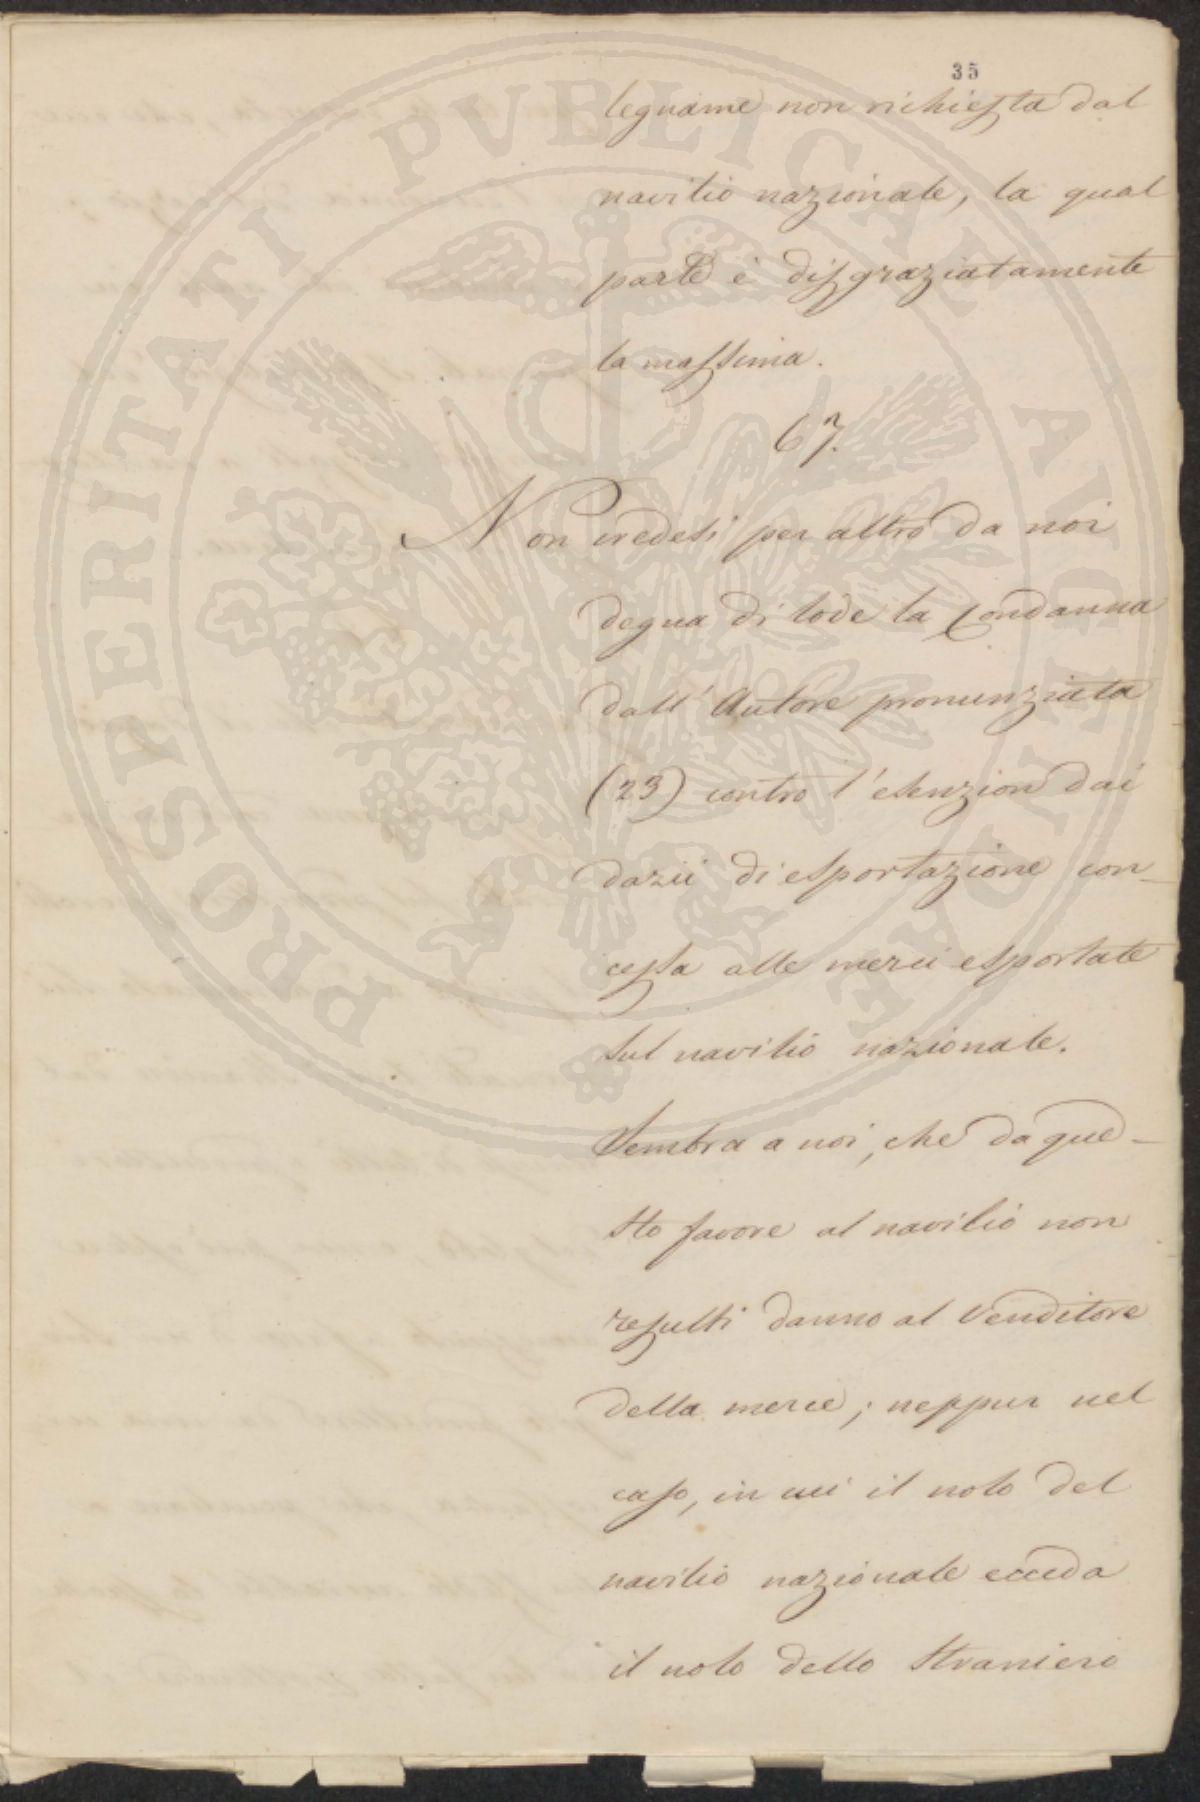 35
legname non richiesta dal
navilio nazionale, la qual
parte è disgraziatamente
la massima.
67.
Non credesi per altro da noi
degna di lode la Condanna
dall' Autore pronunziata
(23) contro l'esenzion dai
dazii di esportazione con-
cessa alle merci esportate
sul navilio nazionale.
Sembra a noi, che da que-
sto favore al navilio non
resulti danno al Venditore
della merce; neppur nel
caso, in cui il nolo del
navilio nazionale ecceda
il nolo dello Straniero
PROSPERITATI PVBLICAE AVGENDAE